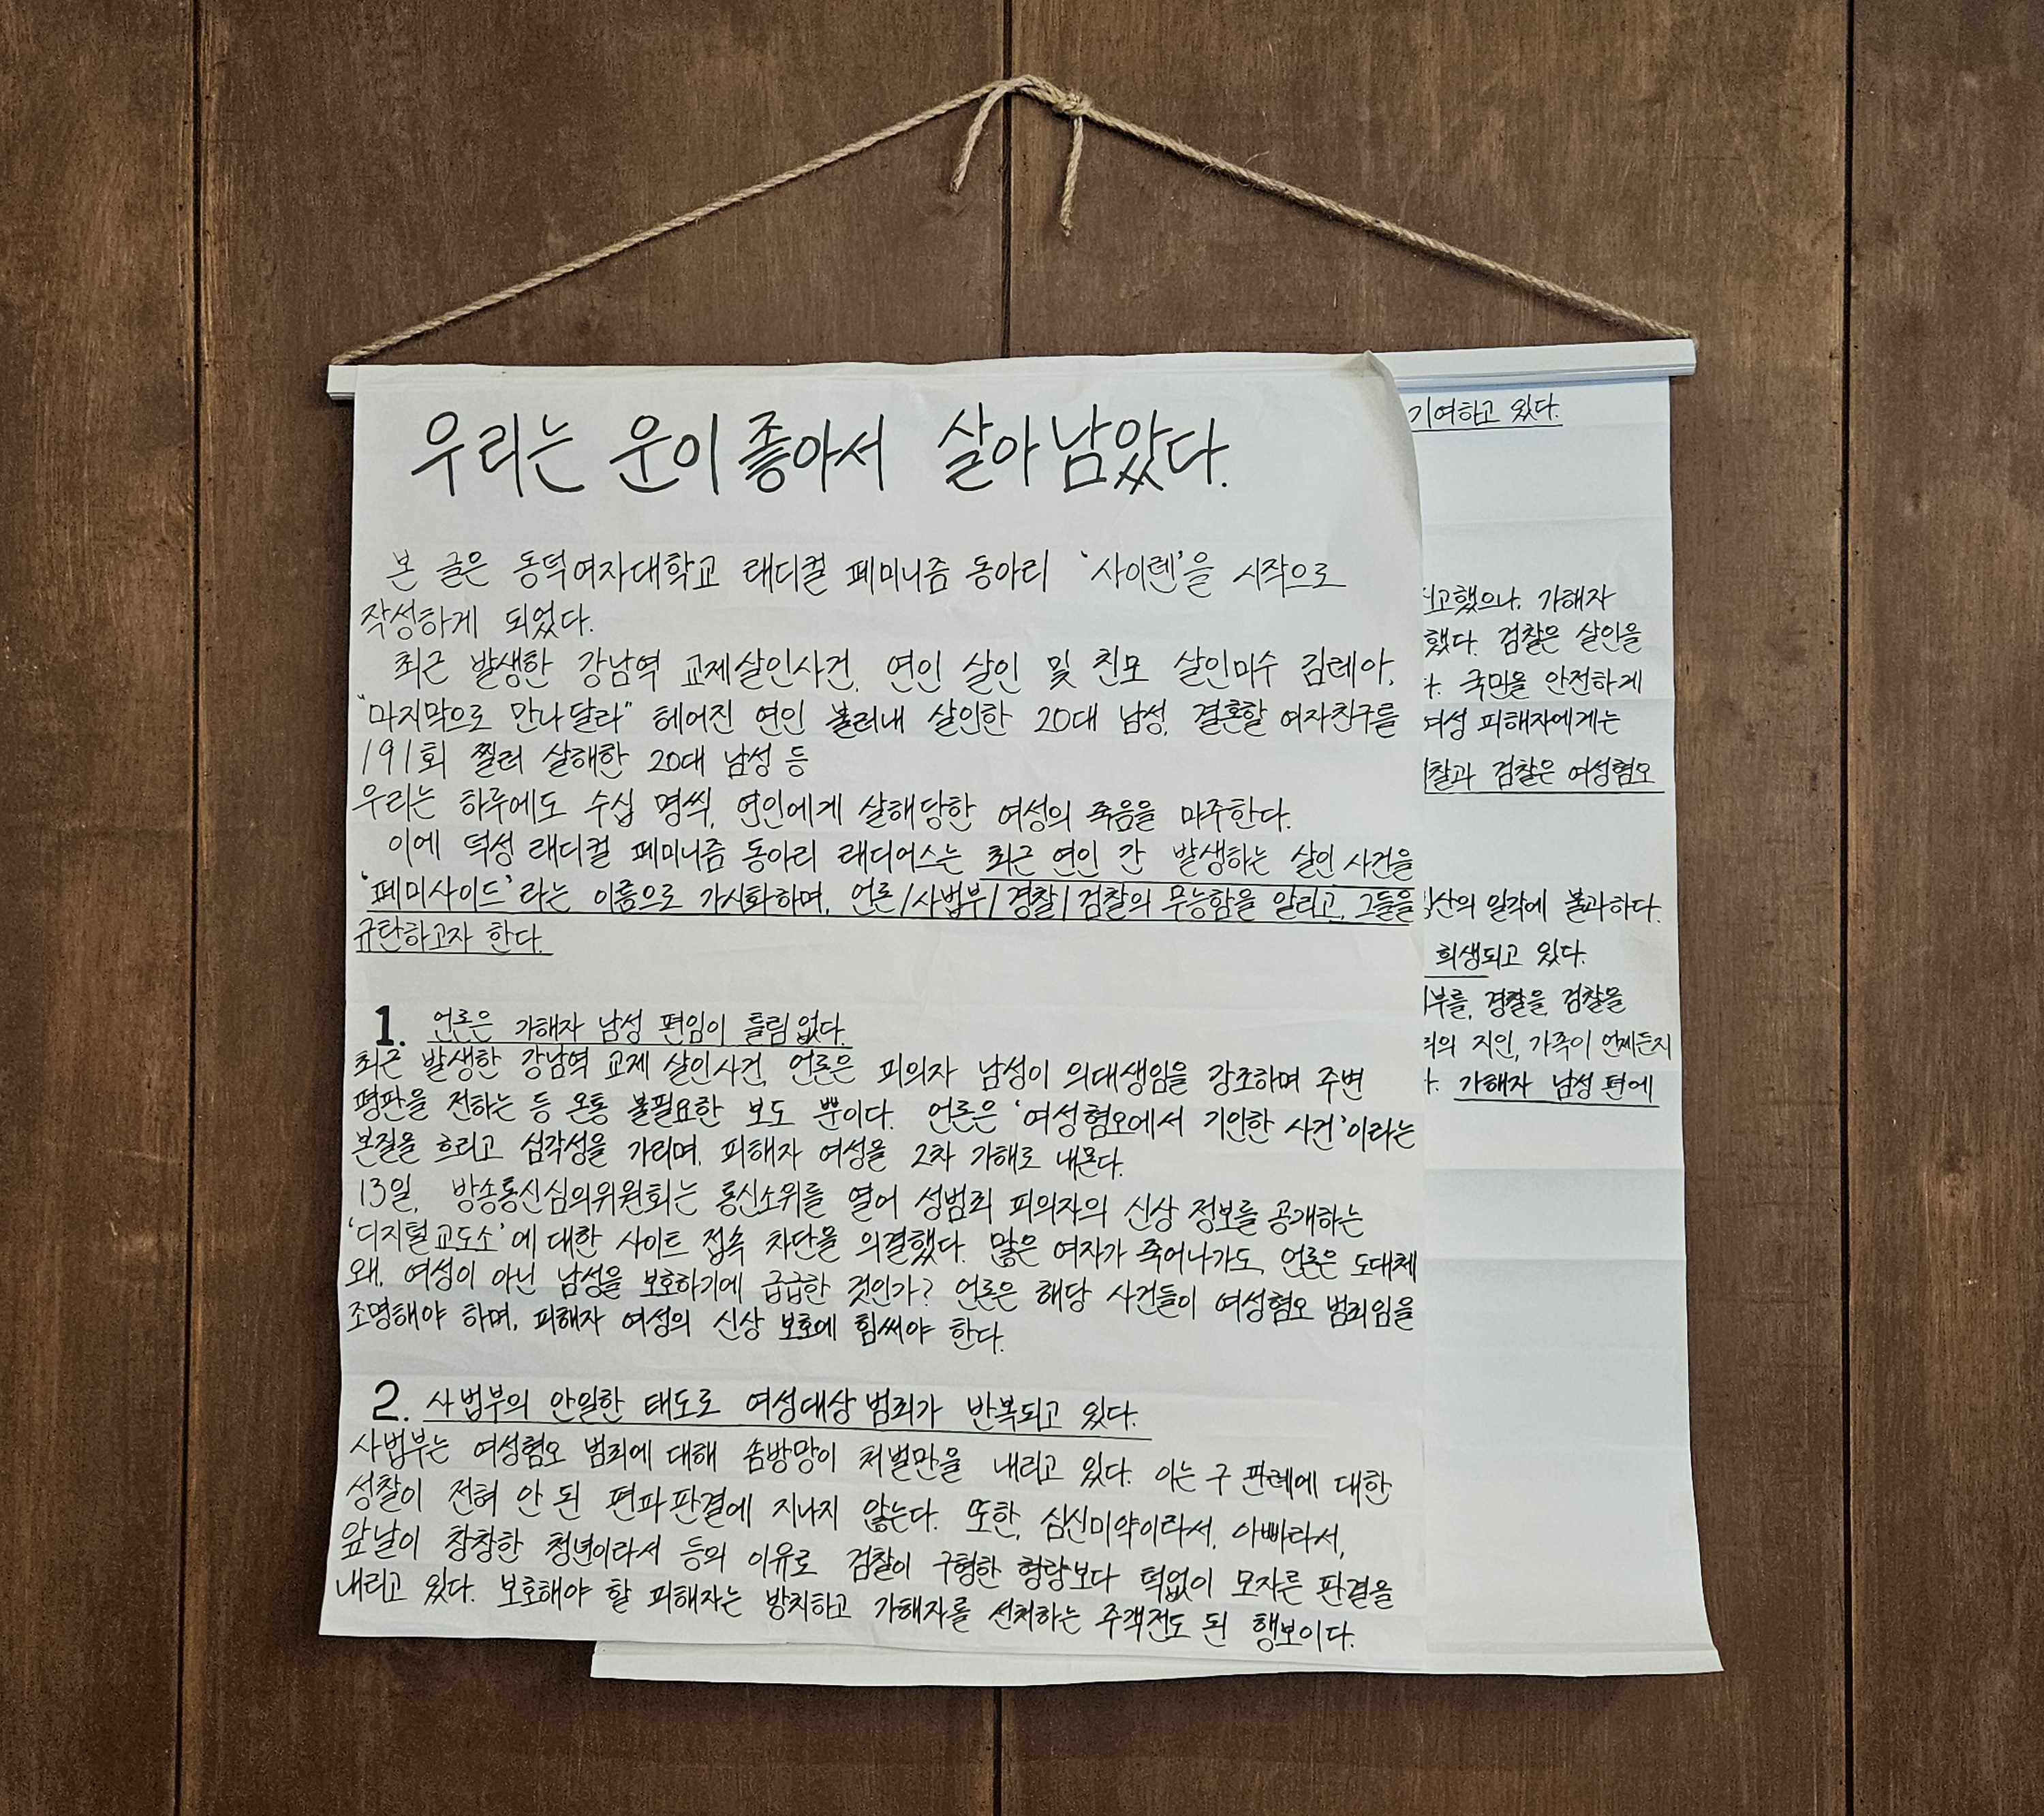 우리는 운이 좋아서 살아남았다.
본 글은 동덕여자대학교 래디컬 페미니즘 동아리 '사이렌'을 시작으로
작성하게 되었다.
최근 발생한 강남역 교제살인사건, 연인 살인 및 친모 살인미수 김레아,
"마지막으로 만나달라" 헤어진 연인 불러내 살인한 20대 남성, 결혼할 여자친구를
191회 찔러 살해한 20대 남성 등
우리는 하루에도 수십 명씩, 연인에게 살해당한 여성의 죽음을 마주한다.
이에 덕성 래디컬 페미니즘 동아리 래디어스는 최근 연인 간 발생하는 살인 사건을
'페미사이드'라는 이름으로 가시화하며, 언론/사법부/경찰/검찰의 무능함을 알리고, 그들을
규탄하고자 한다.
1. 언론은 가해자 남성 편임이 틀림없다.
최근 발생한 강남역 교제 살인사건, 언론은 피의자 남성이 의대생임을 강조하며 주변
평판을 전하는 등 온통 불필요한 보도 뿐이다. 언론은 '여성혐오에서 기인한 사건'이라는
본질을 흐리고 심각성을 가리며, 피해자 여성을 2차 가해로 내몬다.
13일, 방송통신심의위원회는 통신소위를 열어 성범죄 피의자의 신상 정보를 공개하는
'디지털교도소'에 대한 사이트 접속 차단을 의결했다. 많은 여자가 죽어나가도, 언론은 도대체
왜, 여성이 아닌 남성을 보호하기에 급급한 것인가? 언론은 해당 사건들이 여성혐오 범죄임을
조명해야 하며, 피해자 여성의 신상 보호에 힘써야 한다.
2. 사법부의 안일한 태도로 여성대상 범죄가 반복되고 있다.
사법부는 여성혐오 범죄에 대해 솜방망이 처벌만을 내리고 있다. 이는 구 판례에 대한
성찰이 전혀 안 된 편파판결에 지나지 않는다. 또한, 심신미약이라서, 아빠라서,
앞날이 창창한 청년이라서 등의 이유로 검찰이 구형한 형량보다 턱없이 모자른 판결을
내리고 있다. 보호해야 할 피해자는 방치하고 가해자를 선처하는 주객전도 된 행보이다.
기여하고 있다.
고했으나, 가해자
했다. 검찰은 살인을
국민을 안전하게
여성 피해자에게는
찰과 검찰은 여성혐오
산의 일각에 불과하다.
희생되고 있다.
부를, 경찰을, 검찰을
의 지인, 가족이 언제든지
가해자 남성 편에